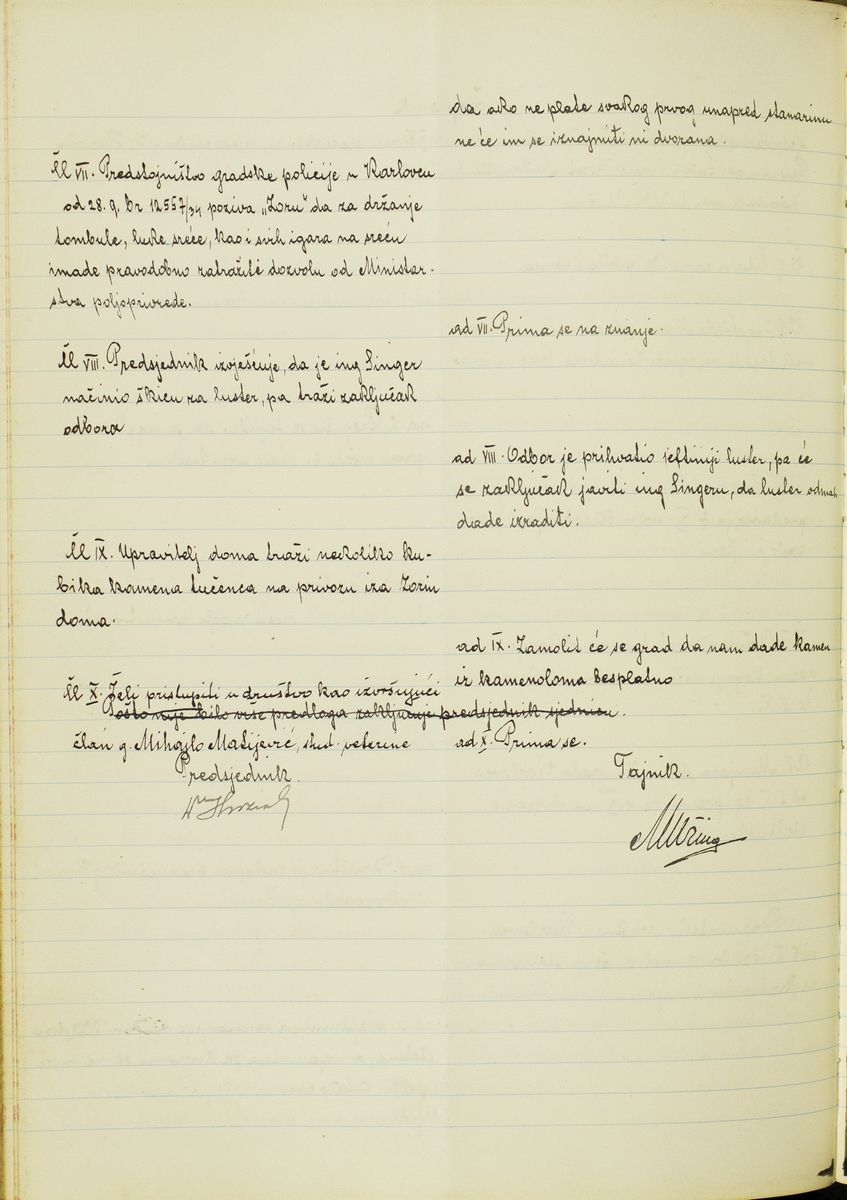 da ako ne plate svakog prvog unapred stanarinu
ne će im se iznajmiti ni dvorana.
Čl VII. Predstojništvo gradske policije u Karlovcu
od 28. 9. br 12557/34 poziva „Zoru" da za držanje
tombule, luke sreće, kao i svih igara na sreću
imade pravodobno zatražiti dozvolu od Ministar-
stva poljoprivrede.
ad VII. Prima se na znanje.
Čl VIII. Predsjednik izvješćuje, da je ing Singer
načinio škicu za luster, pa traži zaključak
odbora
ad VIII. Odbor je prihvatio jeftiniji luster, pa će
se zaključak javiti ing Singeru, da luster odmah
dade izraditi.
Čl IX. Upravitelj doma traži nekoliko ku-
bika kamena tučenca na privozu iza Zorin
doma.
ad IX. Zamolit će se grad da nam dade kamen
iz kamenoloma besplatno
Čl X. Želi pristupiti u društvo kao izvršujući
Pošto nije bilo više predloga zaključuje predsjednik sjednicu.
član g. Mihajlo Matijević, stud. veterine
ad X. Prima se.
Predsjednik.
Tajnik.